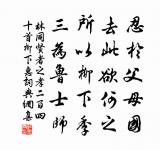 忍於父母國
去此欲何之
所以柳下季
三為魯士師
林同賢者之孝二百四
十首柳下惠詞典網集